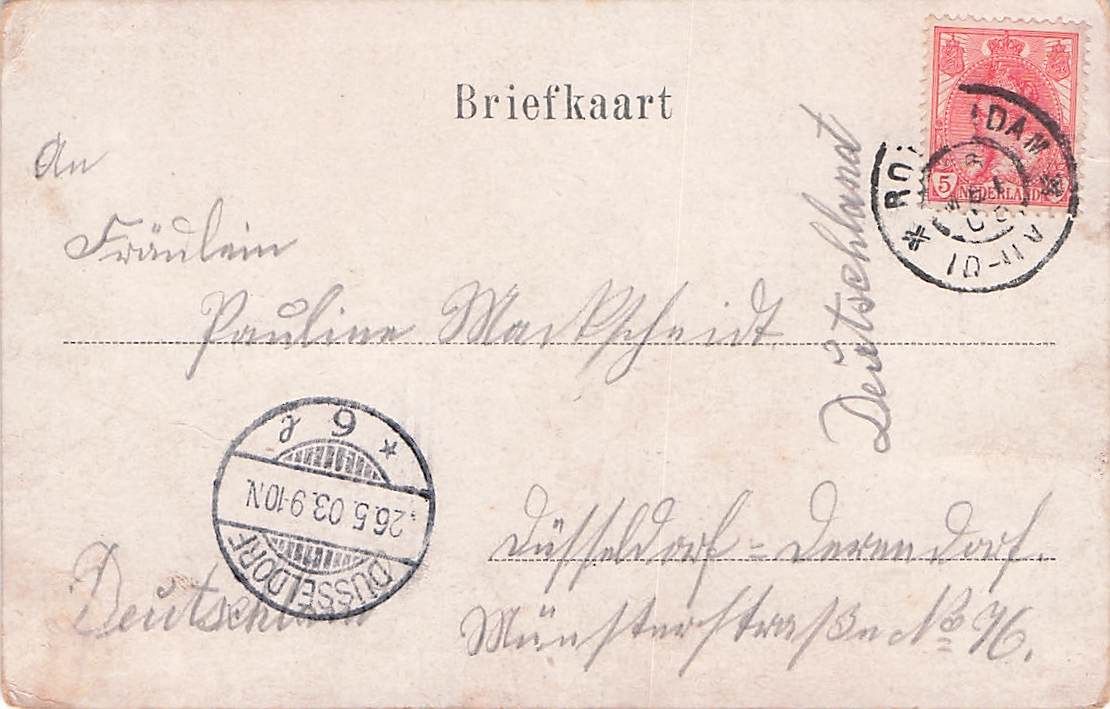 Briefkaart
5 NEDERLAND
DAM
10-11
An
Fräulein
Pauline Markscheidt
Deutschland
* 6 f
26.5.03.9-10N.
DÜSSELDORF
Düsseldorf = Derendorf.
Deutschland
Münsterstraße No 76.